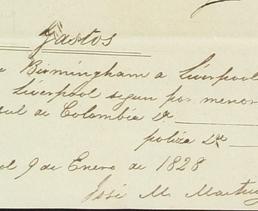 Gastos
Birmingham a Liverpool
Liverpool segun por menor
sul de Colombia Dº
poliza Dº
9 de Enero de 1828
José M.